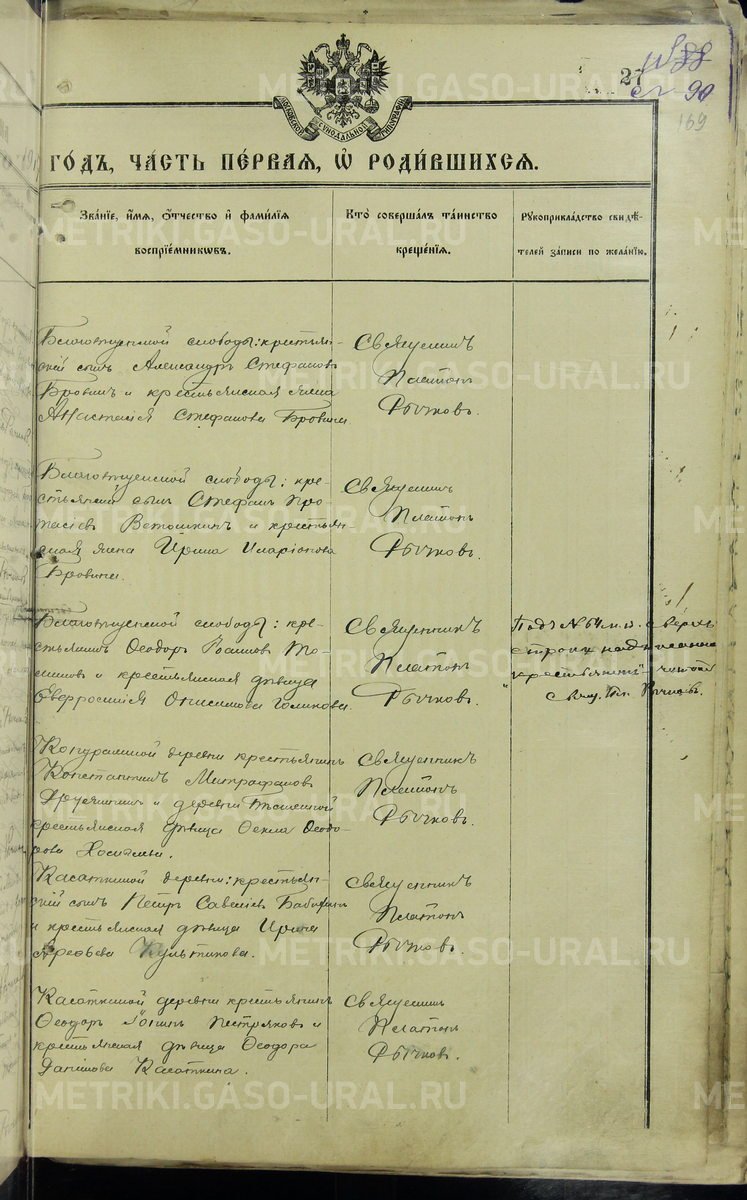 27
90
169
МОСКОВСКОЙ СѴНОДАЛЬНОЙ ТИПОГРАФІИ
ГО́ДЪ, ЧА́СТЬ ПЕ́РВАЯ, Ѽ РОДИ́ВШИХСЯ.
ЗВА́НІЕ, И҆́МЯ, Ѻ҆́ТЧЕСТВО И҆ ФАМИ́ЛІЯ
ВОСПРІЕ́МНИКѠВЪ.
КТО̀ СОВЕРША́ЛЪ ТА́ИНСТВО
КРЕЩЕ́НІЯ.
РУКОПРИКЛА́ДСТВО СВИДѢ́-
ТЕЛЕЙ ЗА́ПИСИ ПО ЖЕЛА́НІЮ.
слободы: крестьян-
скій сынъ Александръ Стефановъ
Бровинъ и крестьянская жена
Анастасія Стефанова Бровина
Священникъ
Платонъ
Рычковъ.
слободы: кре-
стьянскій сынъ Стефанъ Про-
тасіевъ Ветошкинъ и крестьян-
ская жена Ирина Иларіонова
Бровина.
Священникъ
Платонъ
Рычковъ.
слободы: кре-
стьянинъ Ѳеодоръ
и крестьянская дѣвица
Евфросинія Онисимова Голикова.
Священникъ
Платонъ
Рычковъ.
Подъ № 64 м. п. сверхъ
строки надписанное
"крестьянинъ" читать
Свящ. Пл. Рычковъ.
деревни крестьянинъ
Константинъ Митрофановъ
и деревни
крестьянская дѣвица Ѳекла Ѳеодо-
рова
Священникъ
Платонъ
Рычковъ.
Касаткиной деревни: крестьян-
скій сынъ Петръ Савеліевъ Бабкинъ
и крестьянская дѣвица Ирина
Арефьева Культикова.
Священникъ
Платонъ
Рычковъ.
Касаткиной деревни крестьянинъ
Ѳеодоръ Іонинъ Пестряковъ и
крестьянская дѣвица Ѳеодора
Данилова Касаткина.
Священникъ
Платонъ
Рычковъ.
METRIKI.GASO-URAL.RU